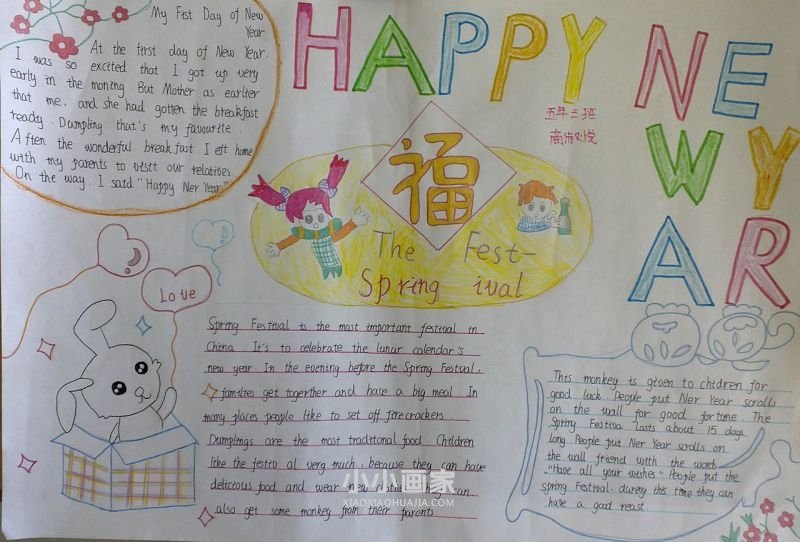 My Fist Day of New
Year
At the first day of New Year.
I was so excited that I got up very
early in the moning. But Mother as earlier
that me, and she had gotten the breakfast
ready. Dumpling. that's my favourite.
After the wonderful breakfast I eft home
with my parents to visit our relatives.
On the way. I said "Happy Ner Year"
HAPPY NE
WY
AR
五年三班
福
The Fest-
Spring ival
Love
Spring Festival is the most important festival in
China. It's to celebrate the lunar calendar's
new year. In the evening before the Spring Festival,
families get together and have a big meal. In
many places people like to set off firecrackers.
Dumplings are the most traditional food. Children
like the festiv al very much, because they can have
delicious food and wear new can
also get some monkey from their parents.
This monkey is given to children for
good luck. People put Ner Year scrolls
on the wall for good fortune. The
Spring Festiva lasts about 15 days
long. People put Ner Year scrolls on
the wall friend with the words
"Have all your wishes". People put the
spring Festival. during this time they can
have a good reast.
小小画家
XIAOXIAOHUAJIA.COM